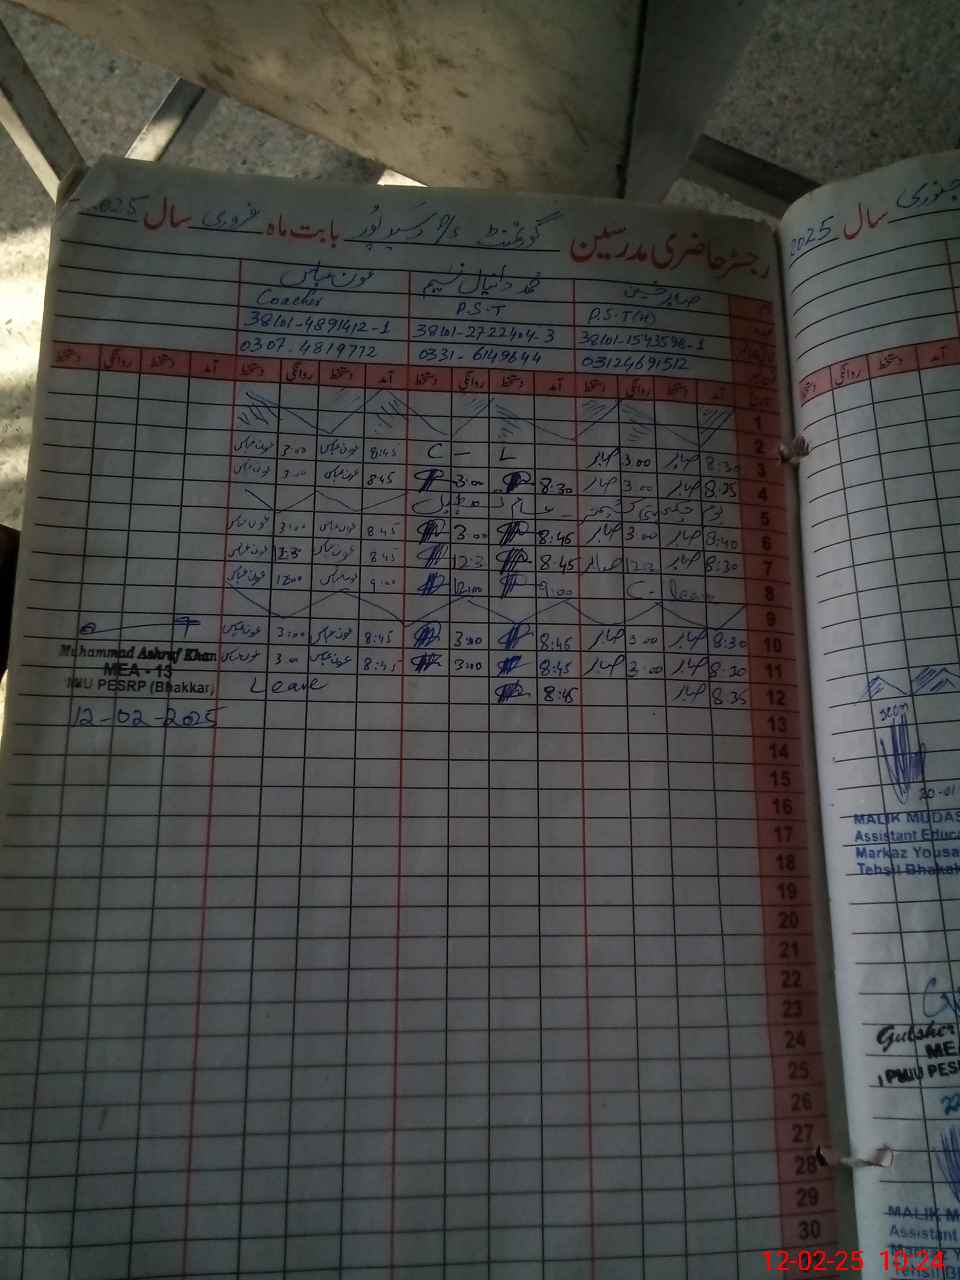 رجسٹر حاضری مدرسین گورنمنٹ بابت ماہ فروری سال 2025
صابر حسین محمد دانیال نسیم عون عباس
P.S.T(H) P.S.T Coacher
38101-1543596-1 38101-2722404-3 38101-4891412-1
03124691512 0331-6149644 0307-4819772
آمد دستخط روانگی دستخط آمد دستخط روانگی دستخط آمد دستخط روانگی دستخط آمد دستخط روانگی دستخط
1
2
3 8:30 صابر 3:00 صابر C - L 8:45 عون عباس 3:00 عون عباس
4 8:25 صابر 3:00 صابر 8:30 3:00 8:45 عون عباس 3:00 عون عباس
5 یوم یکجہتی کشمیر
6 8:40 صابر 3:00 صابر 8:45 3:00 8:45 عون عباس 3:00 عون عباس
7 8:30 صابر 8:45 12:3 8:45 عون عباس 12:3 عون عباس
8 C - leave 9:00 12:00 9:00 عون عباس 12:00 عون عباس
9
10 8:30 صابر 3:00 صابر 8:45 3:00 8:45 عون عباس 3:00 عون عباس
11 8:30 صابر 3:00 صابر 8:45 3:00 8:45 عون عباس 3:00 عون عباس
12 8:35 صابر 8:45 Leave
13
14
15
16
17
18
19
20
21
22
23
24
25
26
27
28
29
30
Muhammad Ashraf Khan
MEA - 13
PESRP (Bhakkar)
12-02-2025
جنوری سال 2025
آمد دستخط روانگی دستخط
20-01
MALIK MUDAS
Assistant Educa
Markaz Yousa
Tehsil Bhakak
Gulsher
ME
PMIU PESR
22
MALIK M
Assistant
Tehsil B
12-02-25 10:24